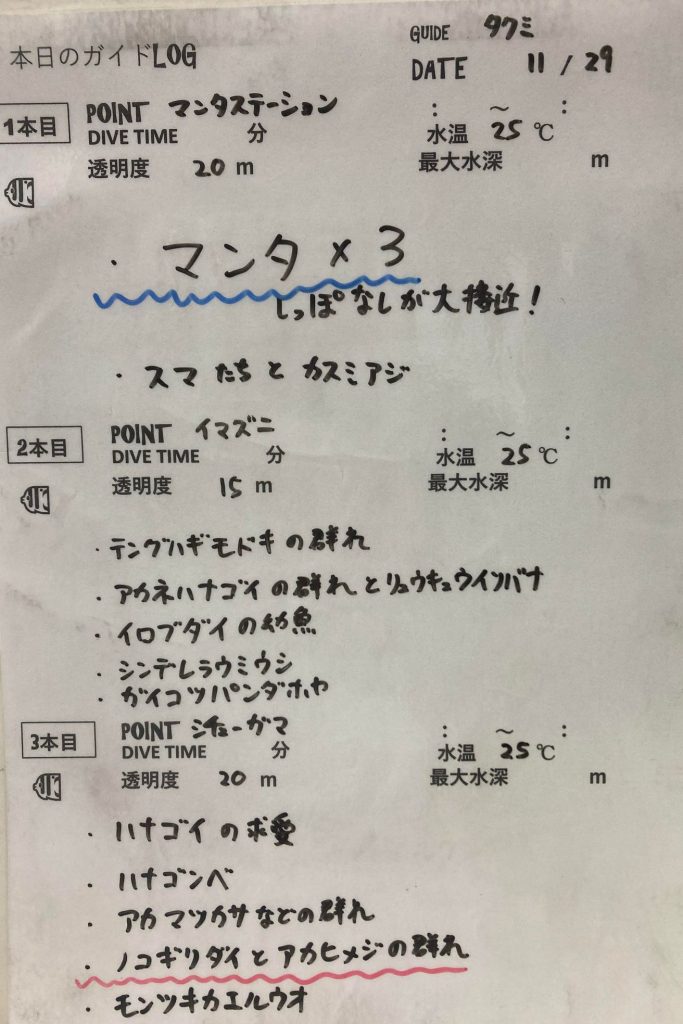 本日のガイドLOG
GUIDE タクミ
DATE 11 / 29
1本目
POINT マンタステーション
: ～ :
DIVE TIME 分
水温 25 ℃
透明度 20 m
最大水深 m
・マンタ×3
しっぽなしが大接近！
・スマたちとカスミアジ
2本目
POINT イマズニ
: ～ :
DIVE TIME 分
水温 25 ℃
透明度 15 m
最大水深 m
・テングハギモドキの群れ
・アカネハナゴイの群れとリュウキュウイソバナ
・イロブダイの幼魚
・シンデレラウミウシ
・ガイコツパンダホヤ
3本目
POINT シチューガマ
: ～ :
DIVE TIME 分
水温 25 ℃
透明度 20 m
最大水深 m
・ハナゴイの求愛
・ハナゴンベ
・アカマツカサなどの群れ
・ノコギリダイとアカヒメジの群れ
・モンツキカエルウオ